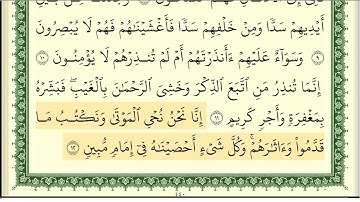 أَيْدِيهِمْ سَدًّا وَمِنْ خَلْفِهِمْ سَدًّا فَأَغْشَيْنَٰهُمْ فَهُمْ لَا يُبْصِرُونَ
٩ وَسَوَآءٌ عَلَيْهِمْ ءَأَنذَرْتَهُمْ أَمْ لَمْ تُنذِرْهُمْ لَا يُؤْمِنُونَ ١٠
إِنَّمَا تُنذِرُ مَنِ ٱتَّبَعَ ٱلذِّكْرَ وَخَشِىَ ٱلرَّحْمَٰنَ بِٱلْغَيْبِ ۖ فَبَشِّرْهُ
بِمَغْفِرَةٍ وَأَجْرٍ كَرِيمٍ ١١ إِنَّا نَحْنُ نُحْىِ ٱلْمَوْتَىٰ وَنَكْتُبُ مَا
قَدَّمُوا۟ وَءَاثَٰرَهُمْ ۚ وَكُلَّ شَىْءٍ أَحْصَيْنَٰهُ فِىٓ إِمَامٍ مُّبِينٍ ١٢
٤٤٠